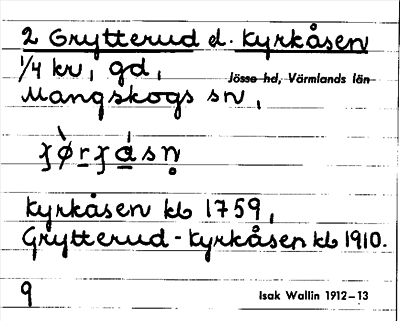 2 Grytterud el. Kyrkåsen
1/4 kr, gd,
Jösse hd, Värmlands län
Mangskogs sn,
Kyrkåsen kb 1759,
Grytterud-Kyrkåsen kb 1910.
9
Isak Wallin 1912–13